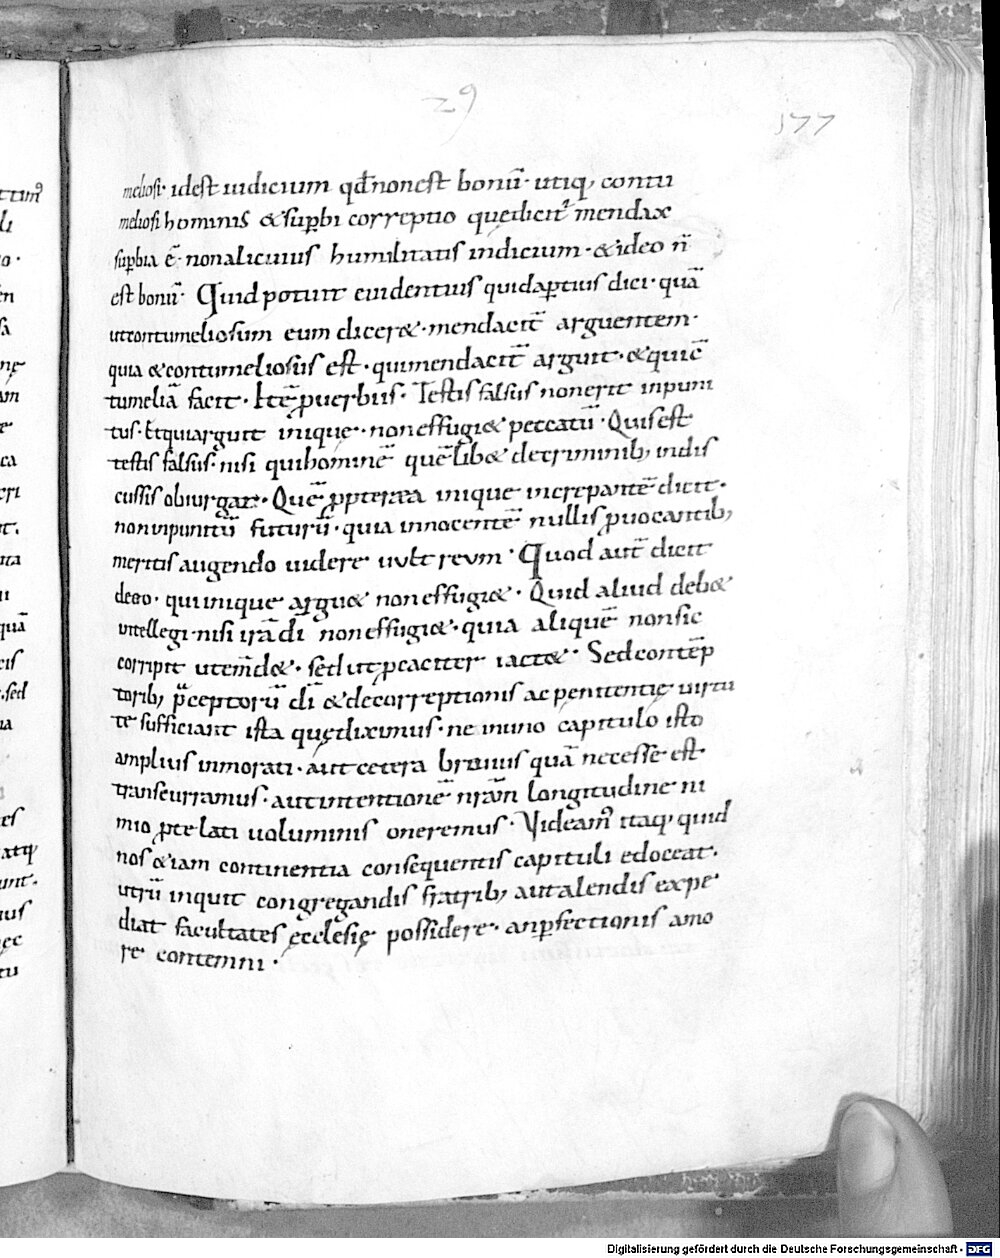 29
177
meliosi· idest iudicium qđ nonest bonū· utiq; contu
meliosi hominis & suꝑbi correptio quędicit᷑ mendax
suꝑbia ē· non alicuius humilitatis indicium· & ideo n̄
est bonū· Quid potuit euidentius quid aꝑtius dici· quā
ut contumeliosum eum dicer&· mendacit̄ arguentem·
quia & contumeliosus est· qui mendacit̄ arguit· & qui c̄
tumeliā facit· Itē ꝓuerbiis· Testis falsus non erit inpuni
tus· Et qui arguit inique· non effugi& peccatū· Quis est
testis falsus· nisi qui hominē quēlib& de criminib; indis
cussis obiurgat· Quē ꝓpterea inique increpantē dicit·
non inpunitū futurū· quia innocentē nullis ꝓuocantib;
meritis augendo uidere uult reum· Quod aut̄ dicit
de eo· qui inique argu& non effugi&· Quid aliud deb&
intellegi· nisi irā dī non effugi&· quia aliquē non sic
corripit ut em̄d&· sed ut ꝓcaciter iact&· Sed contēp
torib; p̄ceptorū dī & de correptionis ac penitentię uirtu
te sufficiant ista quę diximus· ne in uno capitulo isto
amplius inmorati· aut cetera breuius quā necesse est
transcurramus· aut intentionē nr̄am longitudine ni
mio ꝓtelati uoluminis oneremus· Videam᷒ itaq; quid
nos &iam continentia consequentis capituli edoceat·
utrū inquit congregandis fratrib; aut alendis expe
diat facultates ęcclesię possidere· an ꝑfectionis amo
re contemni·